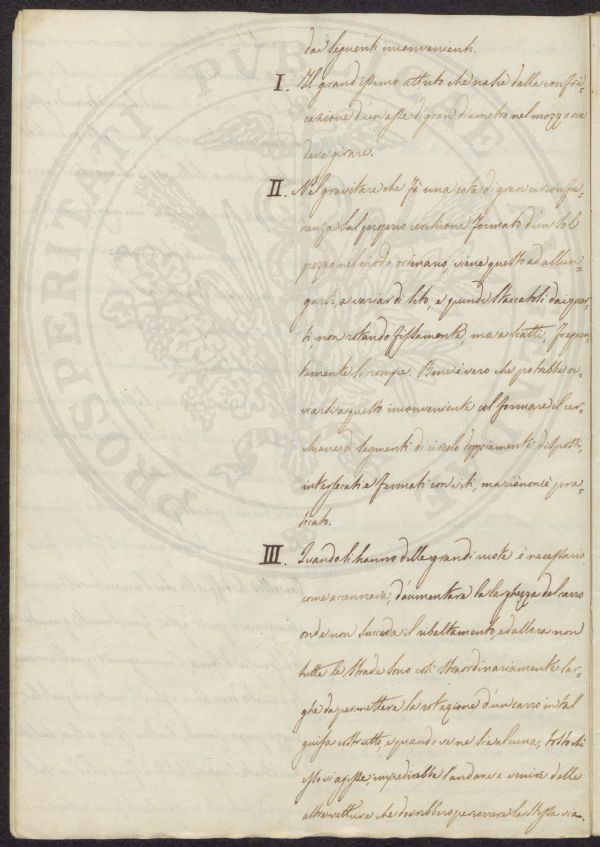 dai seguenti inconvenienti.
I. Il grandissimo attrito che nasce dalla confri=
cazione d'un asse di gran diametro nel mozzo ove
deve girare.
II. Nel gravitare che fà una rota di gran circonfe=
renza sul proprio cerchione formato d'un sol
pezzo nel modo ordinario, viene questo ad allun=
garsi, a variar di sito, e quindi staccatosi dai quar=
ti, non rotando fissamente, ma a tratti, frequen=
temente si rompe. Bene è vero che potrebbe ov=
viarsi a questo inconveniente col formare il cer=
chione di segmenti di circolo doppiamente disposti,
intersecati e fermati con viti, ma ciò non è pra=
ticato.
III. Quando si hanno delle grandi ruote è necessario
come accennai, d'aumentare la larghezza del carro
onde non succeda il ribaltamento, ed allora non
tutte le strade sono così straordinariamente lar=
ghe da permettere la rotazione d'un carro in tal
guisa costrutto, e quando ve ne sia alcuna, tosto chè
esso vi agisse, impedirebbe l'andare e venire delle
altre vetture che dovrebbero percorrere la stessa via.
PROSPERITATI PVBLICAE